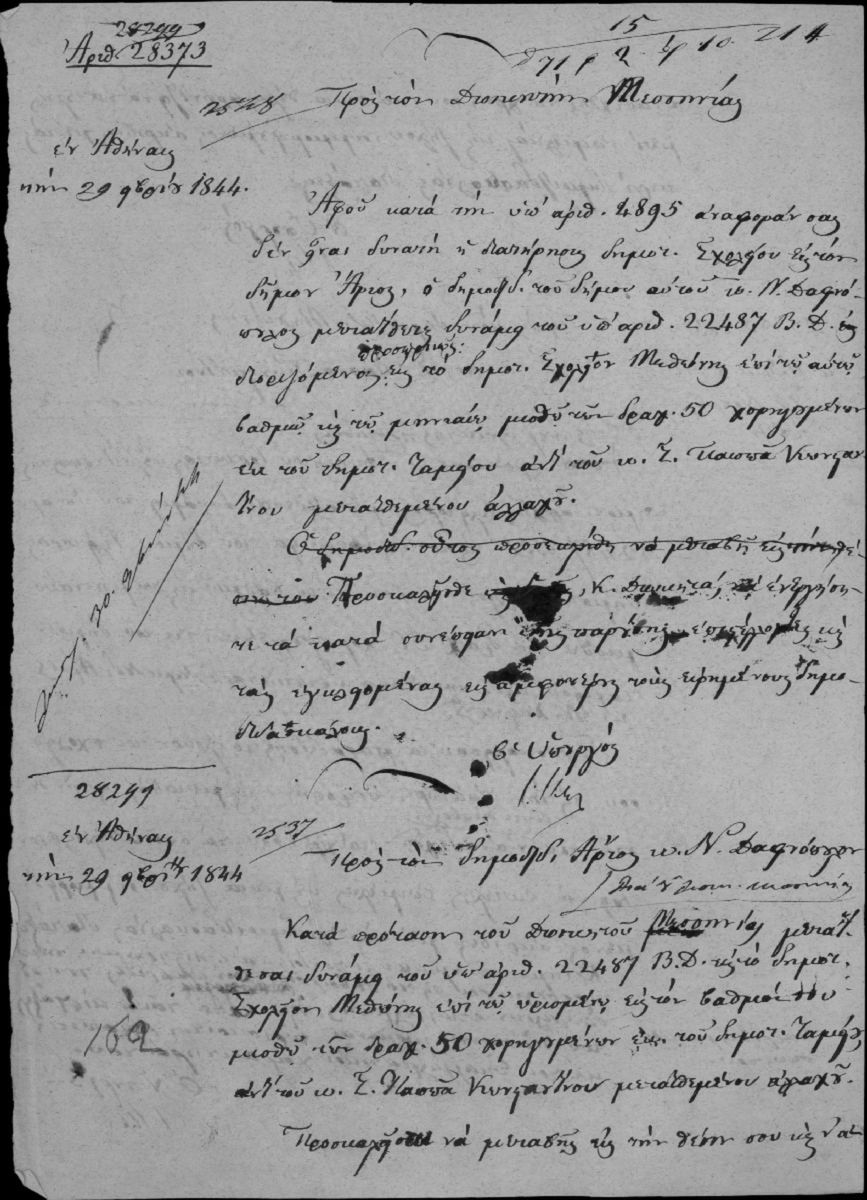 28299
Ἀριθ. 28373
15
971 φ 2. 10. 214
2528
Πρὸς τὸν Διοικητὴν Μεσσηνίας
ἐν Ἀθήναις
τὴν 29 9βρίου 1844.
Ἀφοῦ κατὰ τὴν ὑπ' ἀριθ. 4895 ἀναφοράν σας
δὲν εἶναι δυνατὴ ἡ διατήρησις δημοτ. Σχολείου εἰς τὸν
δῆμον Ἄριος, ὁ δημοδιδ. τοῦ δήμου αὐτοῦ κ. Ν. Δαφνό-
πουλος μετατίθεται δυνάμει τοῦ ὑπ' ἀριθ. 22487 Β. Δ.
προσωρινῶς
διοριζόμενος εἰς τὸ δημοτ. Σχολεῖον Μεθώνης ἐπὶ τῷ αὐτῷ
βαθμῷ καὶ τῷ μηνιαίῳ μισθῷ τῶν δραχ. 50 χορηγουμένων
ἐκ τοῦ δημοτ. Ταμείου ἀντὶ τοῦ κ. Σ. Παππᾶ Κωνσταν-
τίνου μετατιθεμένου ἀλλαχοῦ.
Ὁ δημοδιδ. οὗτος προσεκλήθη νὰ μεταβῇ εἰς τὴν θέ-
σιν του Προσκαλεῖσθε, Κ. Διοικητά, νὰ ἐνεργήση-
τε τὰ κατὰ συνέπειαν τῆς παρούσης ἐπιστέλλοντες καὶ
τὰς ἐγκλειομένας εἰς ἀμφοτέρους τοὺς εἰρημένους δημο-
διδασκάλους.
Ὁ Ὑπουργὸς
28299
ἐν Ἀθήναις
τὴν 29 9βρίου 1844
2537
Πρὸς τὸν δημοδιδ. Ἄριος κ. Ν. Δαφνόπουλον
διὰ τοῦ Διοικ. Μεσσηνίας
Κατὰ πρότασιν τοῦ Διοικητοῦ Μεσσηνίας μετατί-
θεσαι δυνάμει τοῦ ὑπ' ἀριθ. 22487 Β. Δ. εἰς τὸ δημοτ.
Σχολεῖον Μεθώνης ἐπὶ τῷ ὡρισμένῳ εἰς τὸν βαθμόν σου
μισθῷ τῶν δραχ. 50 χορηγουμένων ἐκ τοῦ δημοτ. Ταμείου,
ἀντὶ τοῦ κ. Σ. Παππᾶ Κωνσταντίνου μετατιθεμένου ἀλλαχοῦ.
162
Προσκαλεῖσαι νὰ μεταβῇς εἰς τὴν θέσιν σου καὶ νὰ